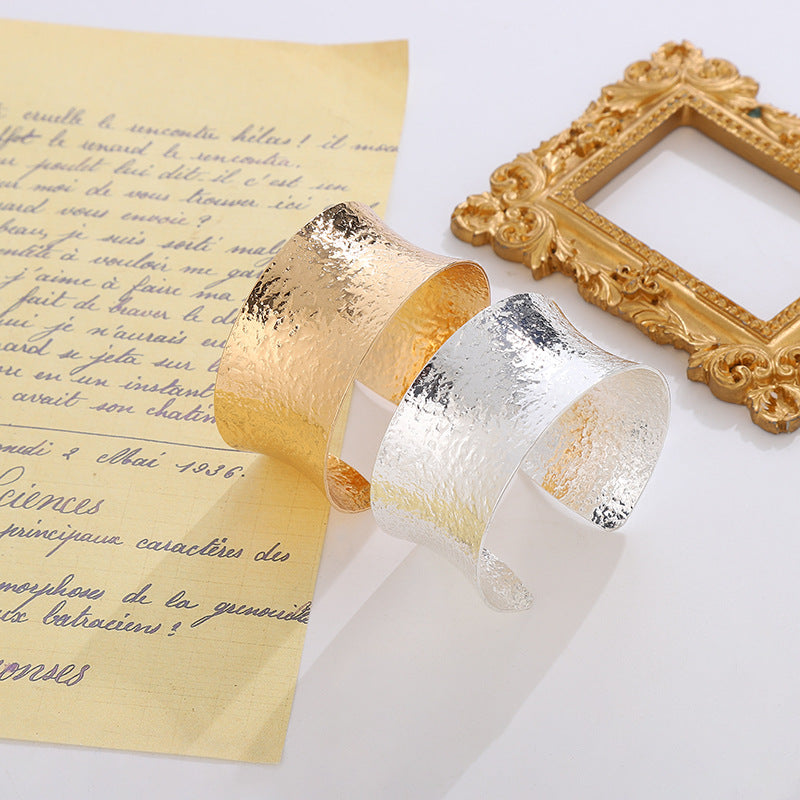 cruelle le rencontre hélas! il
le renard le rencontra.
poulet lui dit il c'est un
moi de vous trouver ici
vous envoie?
je suis sorti
à vouloir me
j'aime à faire ma
fait de braver le
je n'aurais
se jeta sur
en un instant
avait son
2 Mai 1936.
Sciences
principaux caractères des
de la grenouille
batraciens?